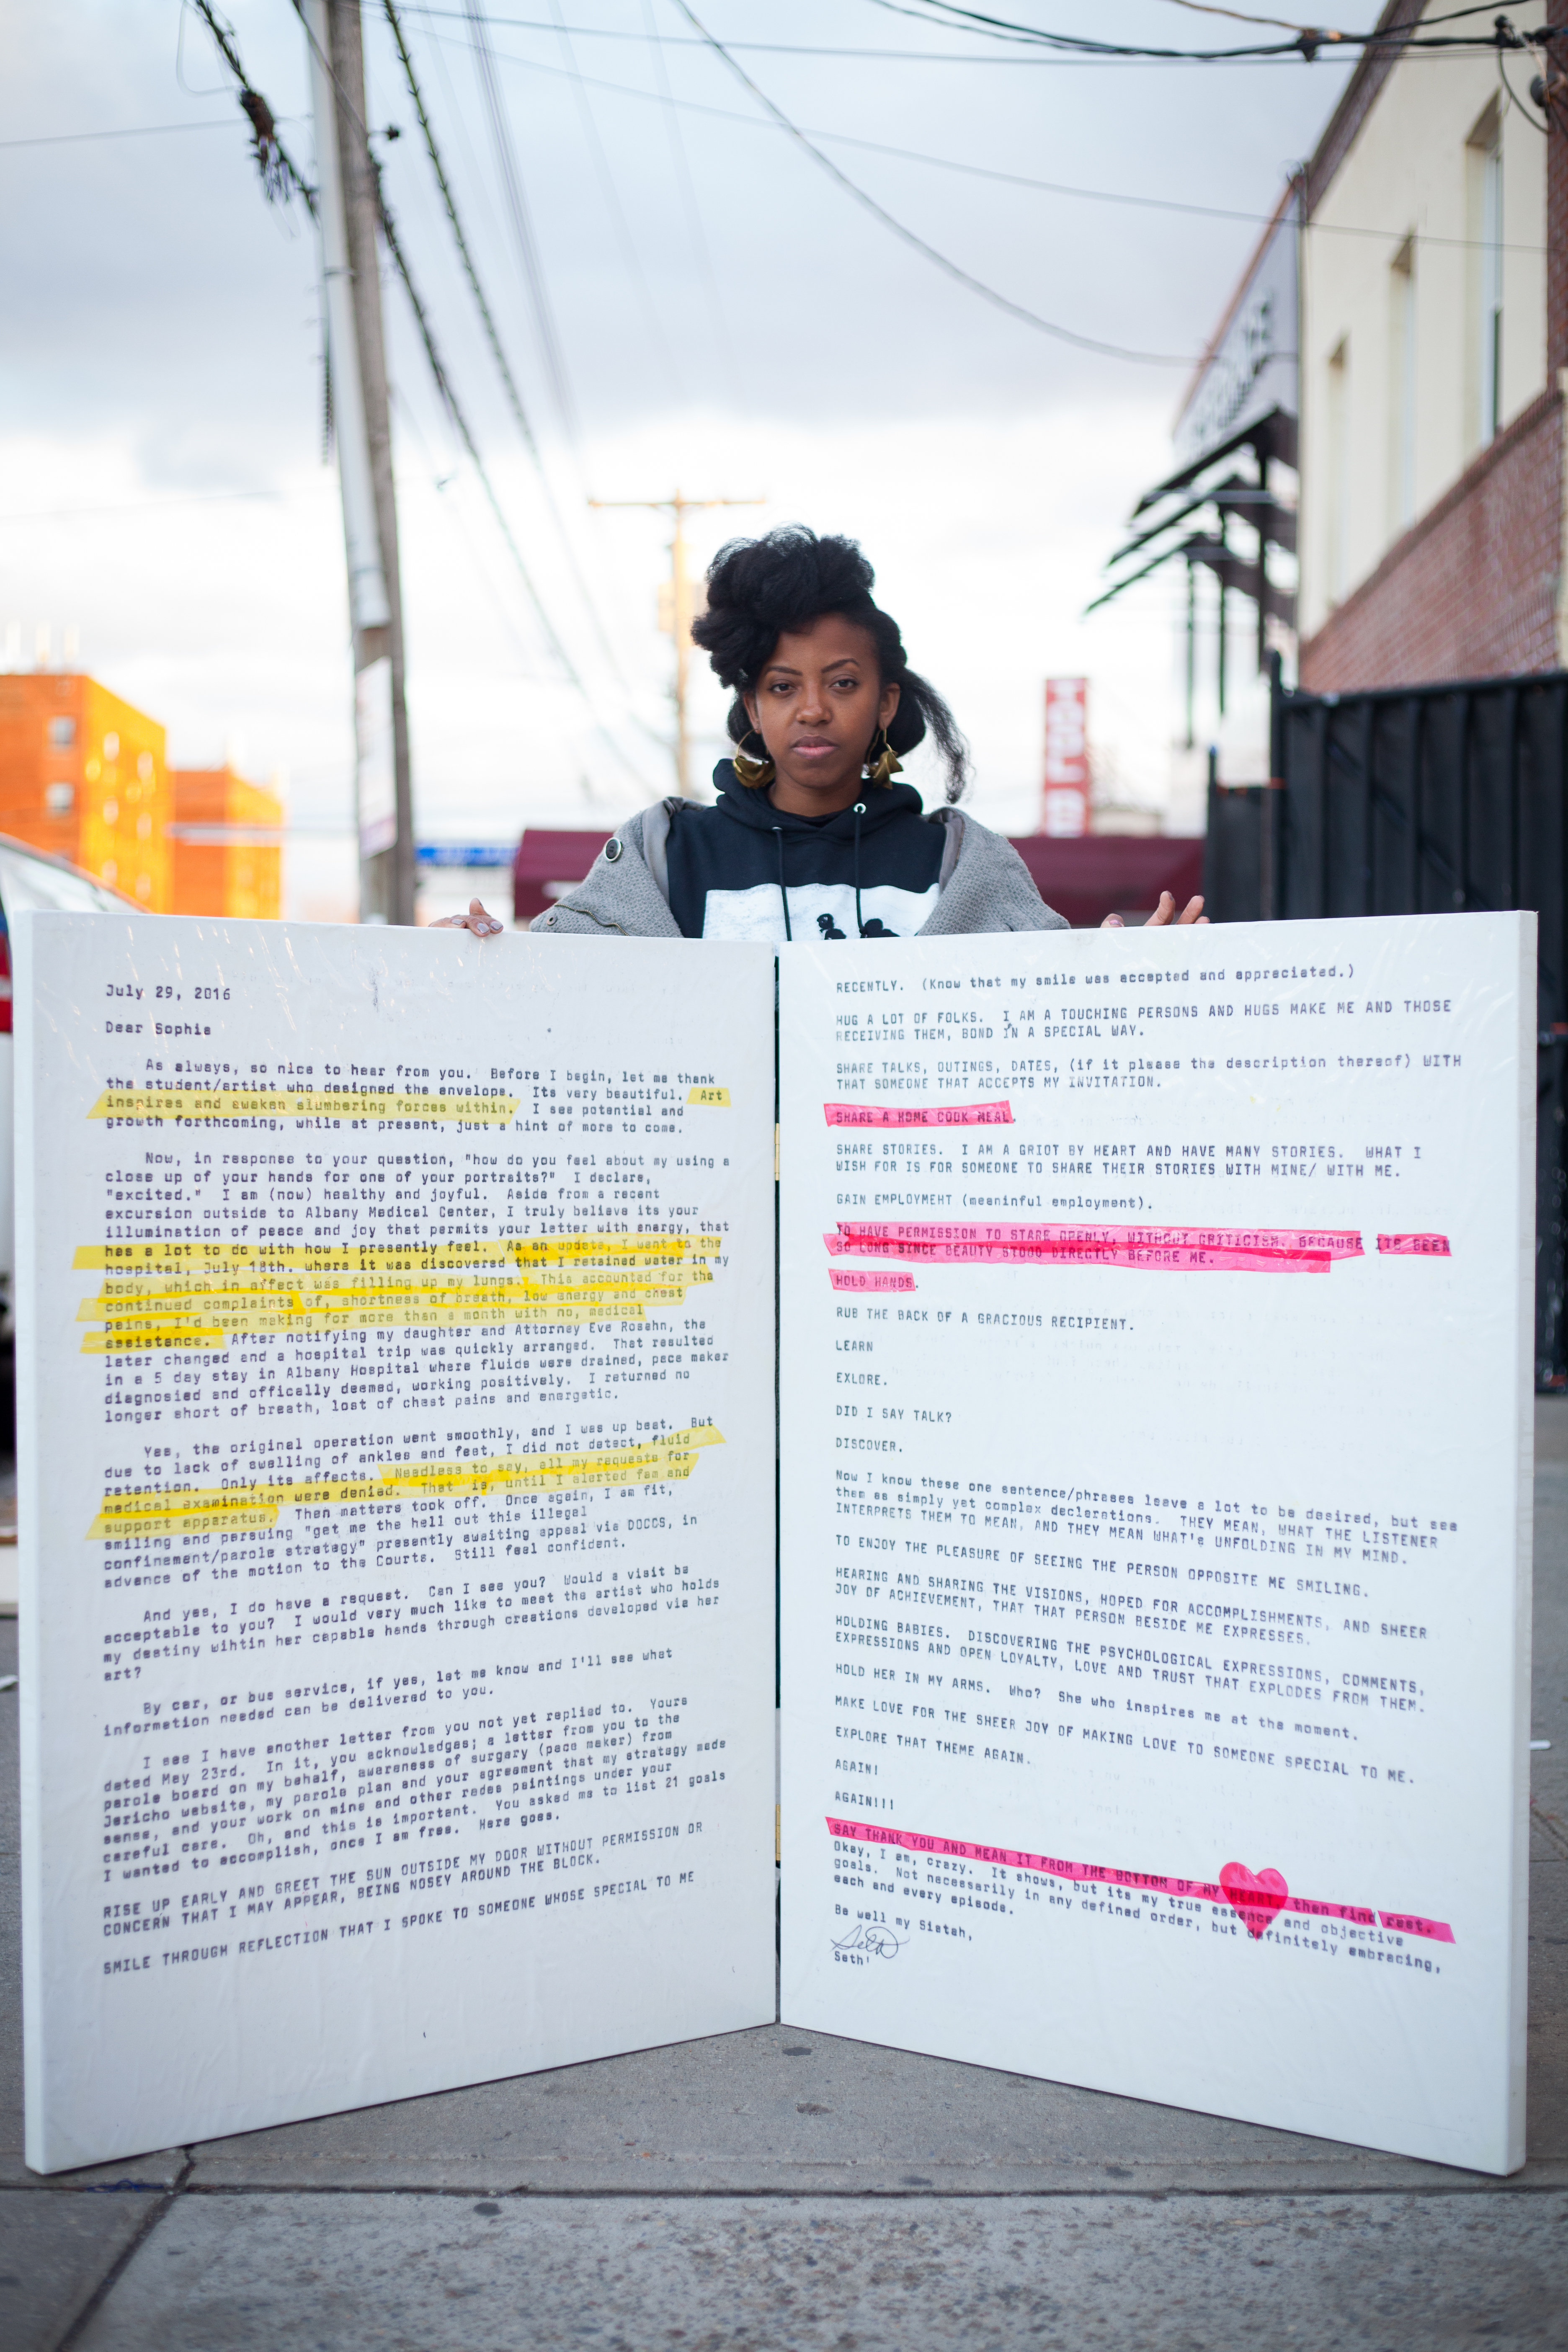 July 29, 2016
Dear Sophia
As always, so nice to hear from you. Before I begin, let me thank
the student/artist who designed the envelope. Its very beautiful. Art
inspires and awaken slumbering forces within. I see potential and
growth forthcoming, while at present, just a hint of more to come.
Now, in response to your question, "how do you feel about my using a
close up of your hands for one of your portraits?" I declare,
"excited." I am (now) healthy and joyful. Aside from a recent
excursion outside to Albany Medical Center, I truly believe its your
illumination of peace and joy that permits your letter with energy, that
has a lot to do with how I presently feel. As an update, I went to the
hospital, July 18th. where it was discovered that I retained water in my
body, which in affect was filling up my lungs. This accounted for the
continued complaints of, shortness of breath, low energy and chest
pains, I'd been making for more than a month with no, medical
assistance. After notifying my daughter and Attorney Eve Rosahn, the
later changed and a hospital trip was quickly arranged. That resulted
in a 5 day stay in Albany Hospital where fluids were drained, pace maker
diagnosied and offically deemed, working positively. I returned no
longer short of breath, lost of chest pains and energetic.
Yes, the original operation went smoothly, and I was up beat. But
due to lack of swelling of ankles and feet, I did not detect, fluid
retention. Only its affects. Needless to say, all my requests for
medical examination were denied. That is, until I alerted fam and
support apparatus. Then matters took off. Once again, I am fit,
smiling and pursuing "get me the hell out this illegal
confinement/parole strategy" presently awaiting appeal via DOCCS, in
advance of the motion to the Courts. Still feel confident.
And yes, I do have a request. Can I see you? Would a visit be
acceptable to you? I would very much like to meet the artist who holds
my destiny wihtin her capable hands through creations developed via her
art?
By car, or bus service, if yes, let me know and I'll see what
information needed can be delivered to you.
I see I have another letter from you not yet replied to. Yours
dated May 23rd. In it, you acknowledges; a letter from you to the
parole board on my behalf, awareness of surgery (pace maker) from
Jericho website, my parole plan and your agreement that my strategy made
sense, and your work on mine and other rades paintings under your
careful care. Oh, and this is important. You asked me to list 21 goals
I wanted to accomplish, once I am free. Here goes.
RISE UP EARLY AND GREET THE SUN OUTSIDE MY DOOR WITHOUT PERMISSION OR
CONCERN THAT I MAY APPEAR, BEING NOSEY AROUND THE BLOCK.
SMILE THROUGH REFLECTION THAT I SPOKE TO SOMEONE WHOSE SPECIAL TO ME
RECENTLY. (Know that my smile was accepted and appreciated.)
HUG A LOT OF FOLKS. I AM A TOUCHING PERSONS AND HUGS MAKE ME AND THOSE
RECEIVING THEM, BOND IN A SPECIAL WAY.
SHARE TALKS, OUTINGS, DATES, (if it please the description thereof) WITH
THAT SOMEONE THAT ACCEPTS MY INVITATION.
SHARE A HOME COOK MEAL.
SHARE STORIES. I AM A GRIOT BY HEART AND HAVE MANY STORIES. WHAT I
WISH FOR IS FOR SOMEONE TO SHARE THEIR STORIES WITH MINE/ WITH ME.
GAIN EMPLOYMEHT (meaninful employment).
TO HAVE PERMISSION TO STARE OPENLY, WITHOUT CRITICISM. BECAUSE ITS BEEN
SO LONG SINCE BEAUTY STOOD DIRECTLY BEFORE ME.
HOLD HANDS.
RUB THE BACK OF A GRACIOUS RECIPIENT.
LEARN
EXLORE.
DID I SAY TALK?
DISCOVER.
Now I know these one sentence/phrases leave a lot to be desired, but see
them as simply yet complex declarations. THEY MEAN, WHAT THE LISTENER
INTERPRETS THEM TO MEAN, AND THEY MEAN WHAT's UNFOLDING IN MY MIND.
TO ENJOY THE PLEASURE OF SEEING THE PERSON OPPOSITE ME SMILING.
HEARING AND SHARING THE VISIONS, HOPED FOR ACCOMPLISHMENTS, AND SHEER
JOY OF ACHIEVEMENT, THAT THAT PERSON BESIDE ME EXPRESSES.
HOLDING BABIES. DISCOVERING THE PSYCHOLOGICAL EXPRESSIONS, COMMENTS,
EXPRESSIONS AND OPEN LOYALTY, LOVE AND TRUST THAT EXPLODES FROM THEM.
HOLD HER IN MY ARMS. Who? She who inspires me at the moment.
MAKE LOVE FOR THE SHEER JOY OF MAKING LOVE TO SOMEONE SPECIAL TO ME.
EXPLORE THAT THEME AGAIN.
AGAIN!
AGAIN!!!
SAY THANK YOU AND MEAN IT FROM THE BOTTOM OF MY HEART then find rest.
Okay, I am, crazy. It shows, but its my true essence and objective
goals. Not necessarily in any defined order, but definitely embracing,
each and every episode.
Be well my Sistah,
Seth
Seth!